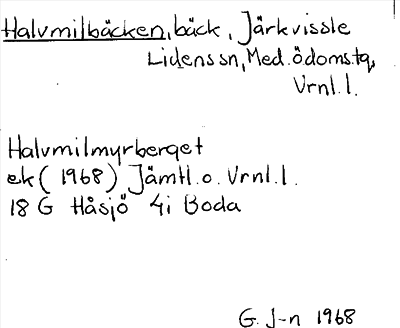 Halvmilbäcken, bäck, Järkvissle
Lidens sn, Med.ödoms.tg,
Vrnl.l.
Halvmilmyrberget
ek (1968) Jämtl.o. Vrnl.l.
18 G Håsjö 4i Boda
G. J-n 1968